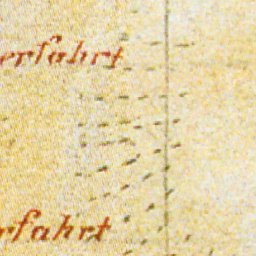 erfahrt
rfahrt